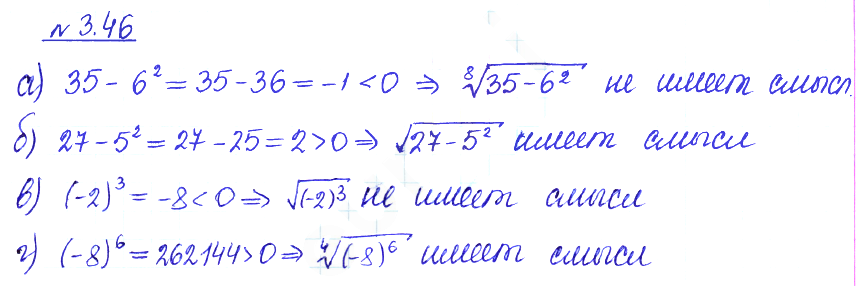 № 3.46
а) 35 - 6² = 35 - 36 = -1 < 0 ⇒ ⁸√(35 - 6²) не имеет смысл
б) 27 - 5² = 27 - 25 = 2 > 0 ⇒ √(27 - 5²) имеет смысл
в) (-2)³ = -8 < 0 ⇒ √(-2)³ не имеет смысл
г) (-8)⁶ = 262144 > 0 ⇒ ⁴√(-8)⁶ имеет смысл